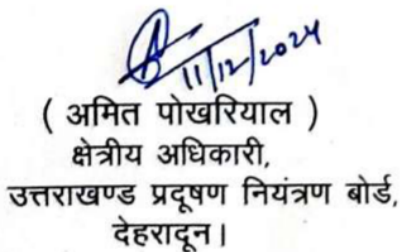 11/12/2024
( अमित पोखरियाल )
क्षेत्रीय अधिकारी,
उत्तराखण्ड प्रदूषण नियंत्रण बोर्ड,
देहरादून।